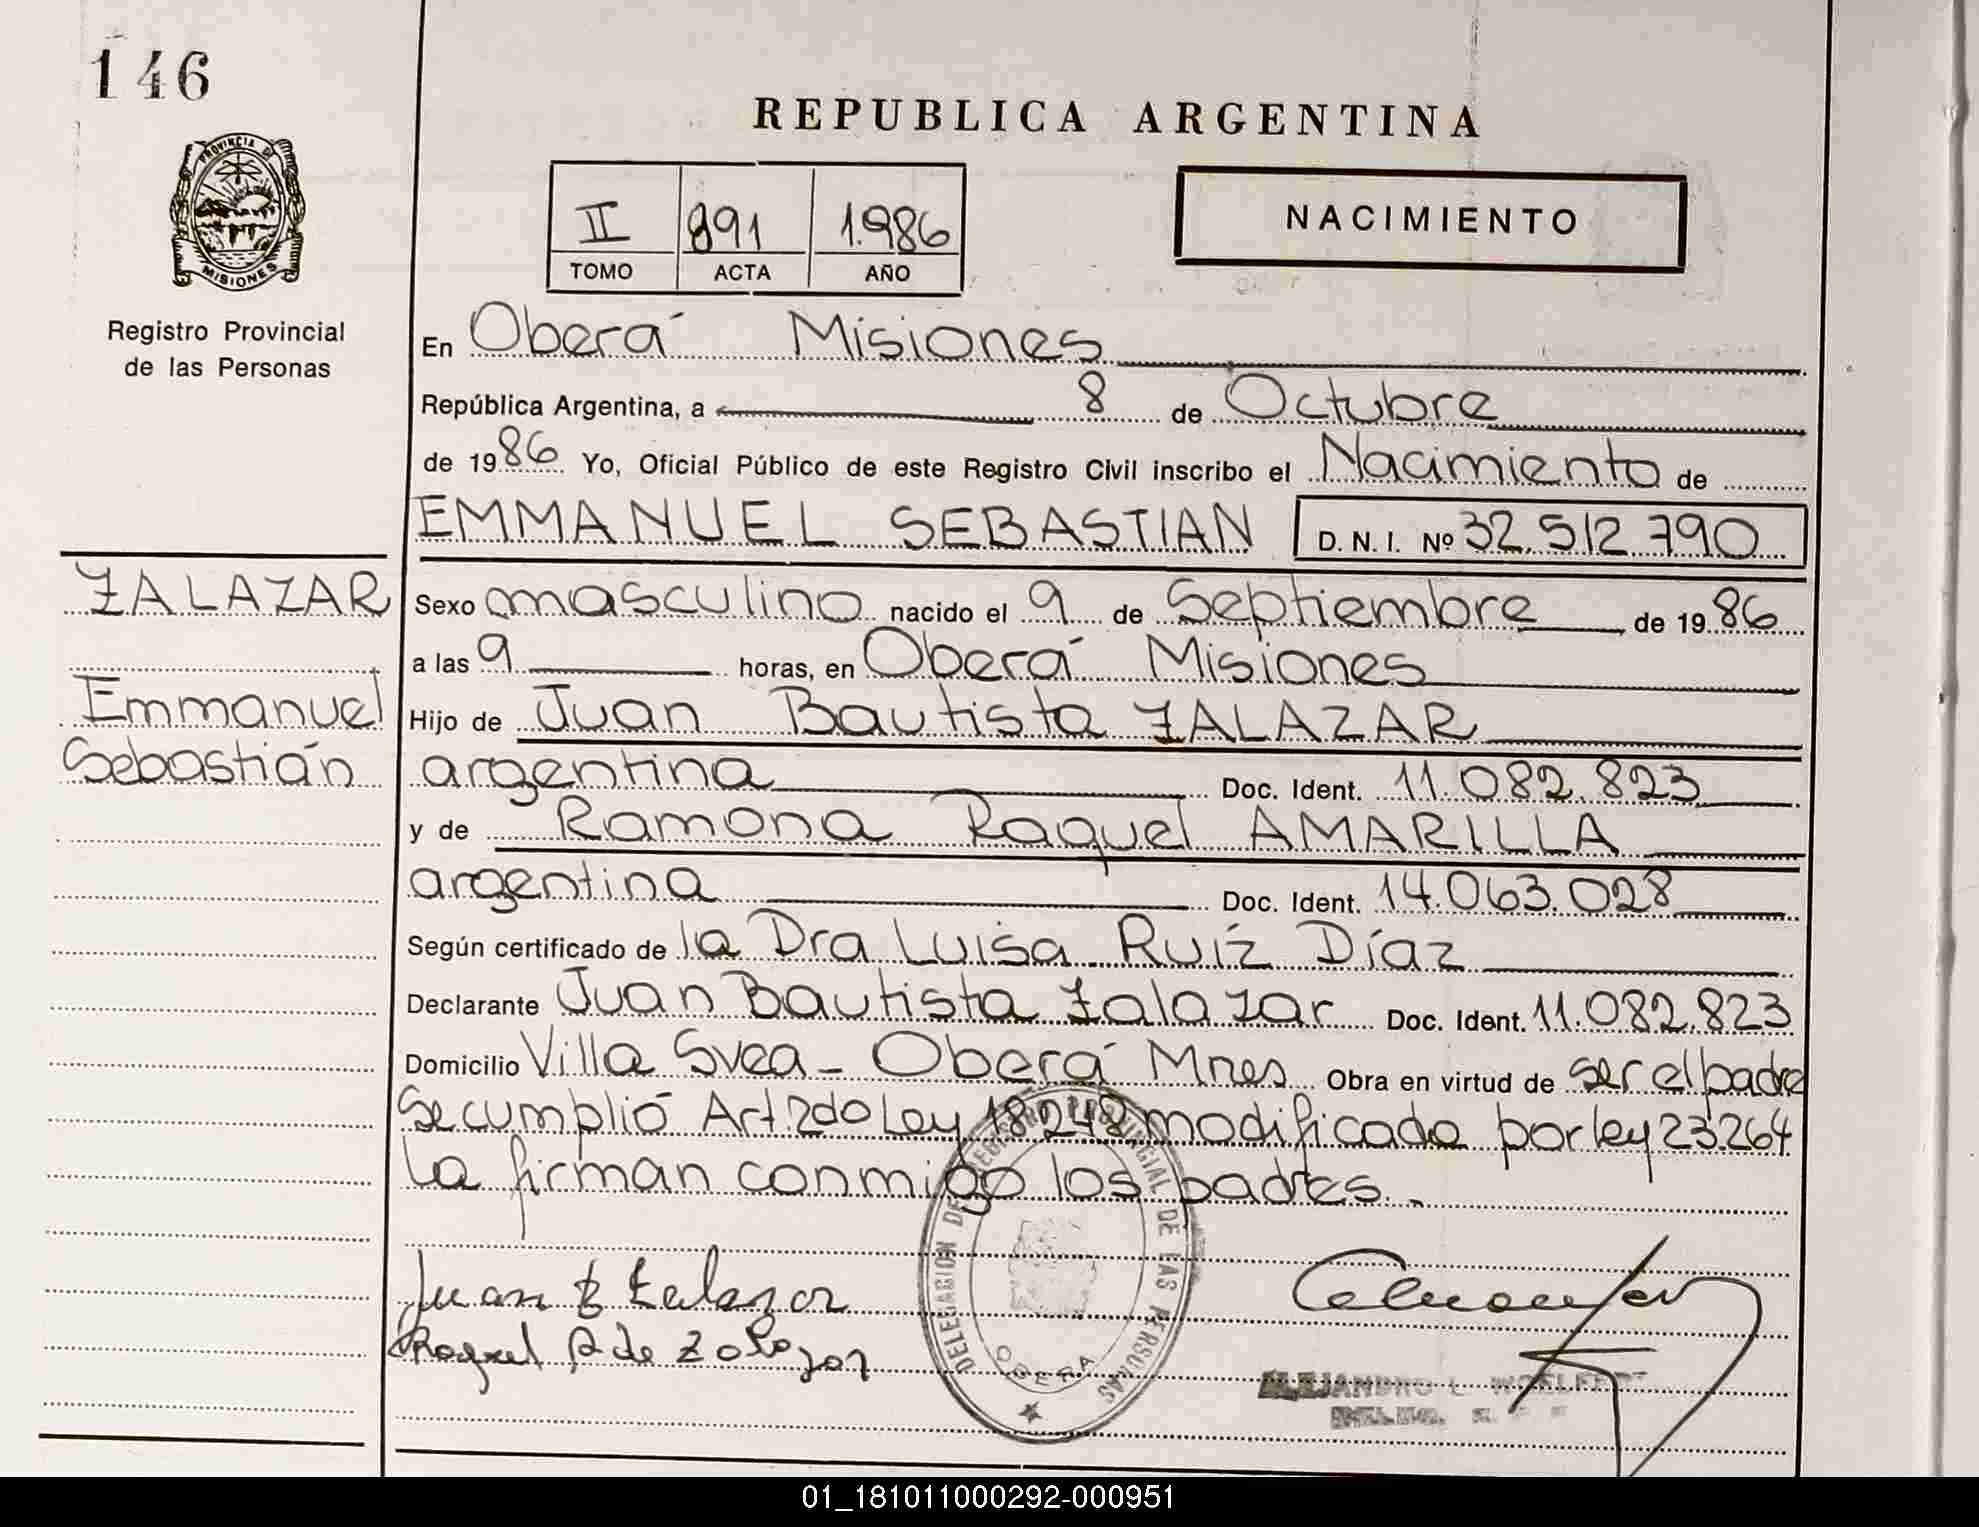 146
REPUBLICA ARGENTINA
PROVINCIA DE
MISIONES
II 891 1.986
TOMO ACTA AÑO
NACIMIENTO
Registro Provincial
de las Personas
En Oberá Misiones
República Argentina, a 8 de Octubre
de 1986 Yo, Oficial Público de este Registro Civil inscribo el Nacimiento de
EMMANUEL SEBASTIAN D. N. I. Nº 32.512.790
ZALAZAR
Emmanuel
Sebastián
Sexo masculino nacido el 9 de Septiembre de 1986
a las 9 horas, en Oberá Misiones
Hijo de Juan Bautista ZALAZAR
argentina Doc. Ident. 11.082.823
y de Ramona Raquel AMARILLA
argentina Doc. Ident. 14.063.028
Según certificado de la Dra Luisa Ruíz Díaz
Declarante Juan Bautista Zalazar Doc. Ident. 11.082.823
Domicilio Villa Svea - Oberá Mnes Obra en virtud de ser el padre
Se cumplió Art. 2do Ley 18248 modificada por ley 23264
La firman conmigo los padres.
Juan B Zalazar
Raquel A de Zalazar
DELEGACION DEL REGISTRO PROVINCIAL DE LAS PERSONAS
OBERA
ALEJANDRO L.
01_181011000292-000951